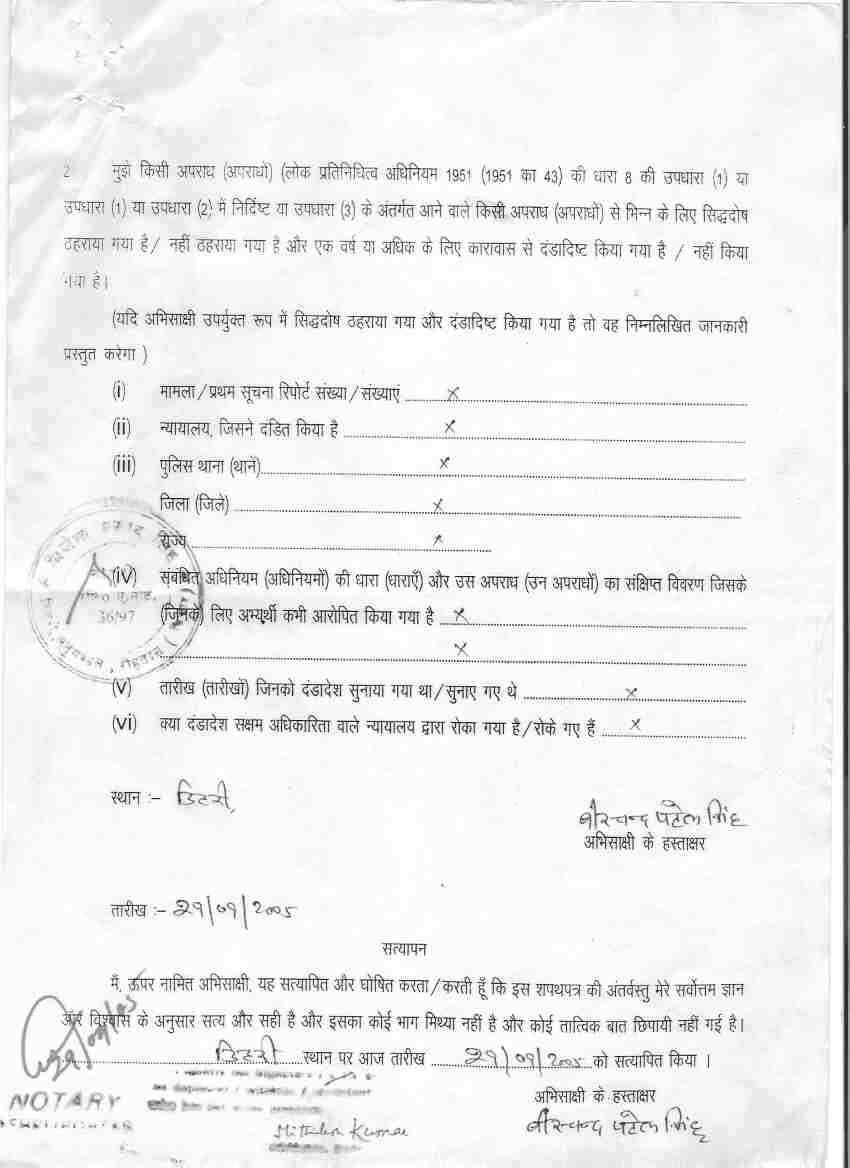 2 मुझे किसी अपराध (अपराधों) (लोक प्रतिनिधित्व अधिनियम 1951 (1951 का 43) की धारा 8 की उपधारा (1) या
उपधारा (1) या उपधारा (2) में निर्दिष्ट या उपधारा (3) के अंतर्गत आने वाले किसी अपराध (अपराधों) से भिन्न के लिए सिद्धदोष
ठहराया गया है / नहीं ठहराया गया है और एक वर्ष या अधिक के लिए कारावास से दंडादिष्ट किया गया है / नहीं किया
गया है।
(यदि अभिसाक्षी उपर्युक्त रूप में सिद्धदोष ठहराया गया और दंडादिष्ट किया गया है तो वह निम्नलिखित जानकारी
प्रस्तुत करेगा )
(i) मामला/प्रथम सूचना रिपोर्ट संख्या/संख्याएं x
(ii) न्यायालय, जिसने दंडित किया है x
(iii) पुलिस थाना (थानें) x
जिला (जिले) x
राज्य x
(iv) संबंधित अधिनियम (अधिनियमों) की धारा (धाराएँ) और उस अपराध (उन अपराधों) का संक्षिप्त विवरण जिसके
(जिनके) लिए अभ्यर्थी कभी आरोपित किया गया है x
x
36/97
(v) तारीख (तारीखों) जिनको दंडादेश सुनाया गया था/सुनाए गए थे x
(vi) क्या दंडादेश सक्षम अधिकारिता वाले न्यायालय द्वारा रोका गया है/रोके गए हैं x
स्थान :– डिहरी,
वीरचन्द पटेल सिंह
अभिसाक्षी के हस्ताक्षर
तारीख :– 21/01/2005
सत्यापन
मैं, ऊपर नामित अभिसाक्षी, यह सत्यापित और घोषित करता/करती हूँ कि इस शपथपत्र की अंतर्वस्तु मेरे सर्वोत्तम ज्ञान
और विश्वास के अनुसार सत्य और सही है और इसका कोई भाग मिथ्या नहीं है और कोई तात्विक बात छिपायी नहीं गई है।
डिहरी स्थान पर आज तारीख 21/01/2005 को सत्यापित किया ।
अभिसाक्षी के हस्ताक्षर
NOTARY
Mithilesh Kumar
वीरचन्द पटेल सिंह